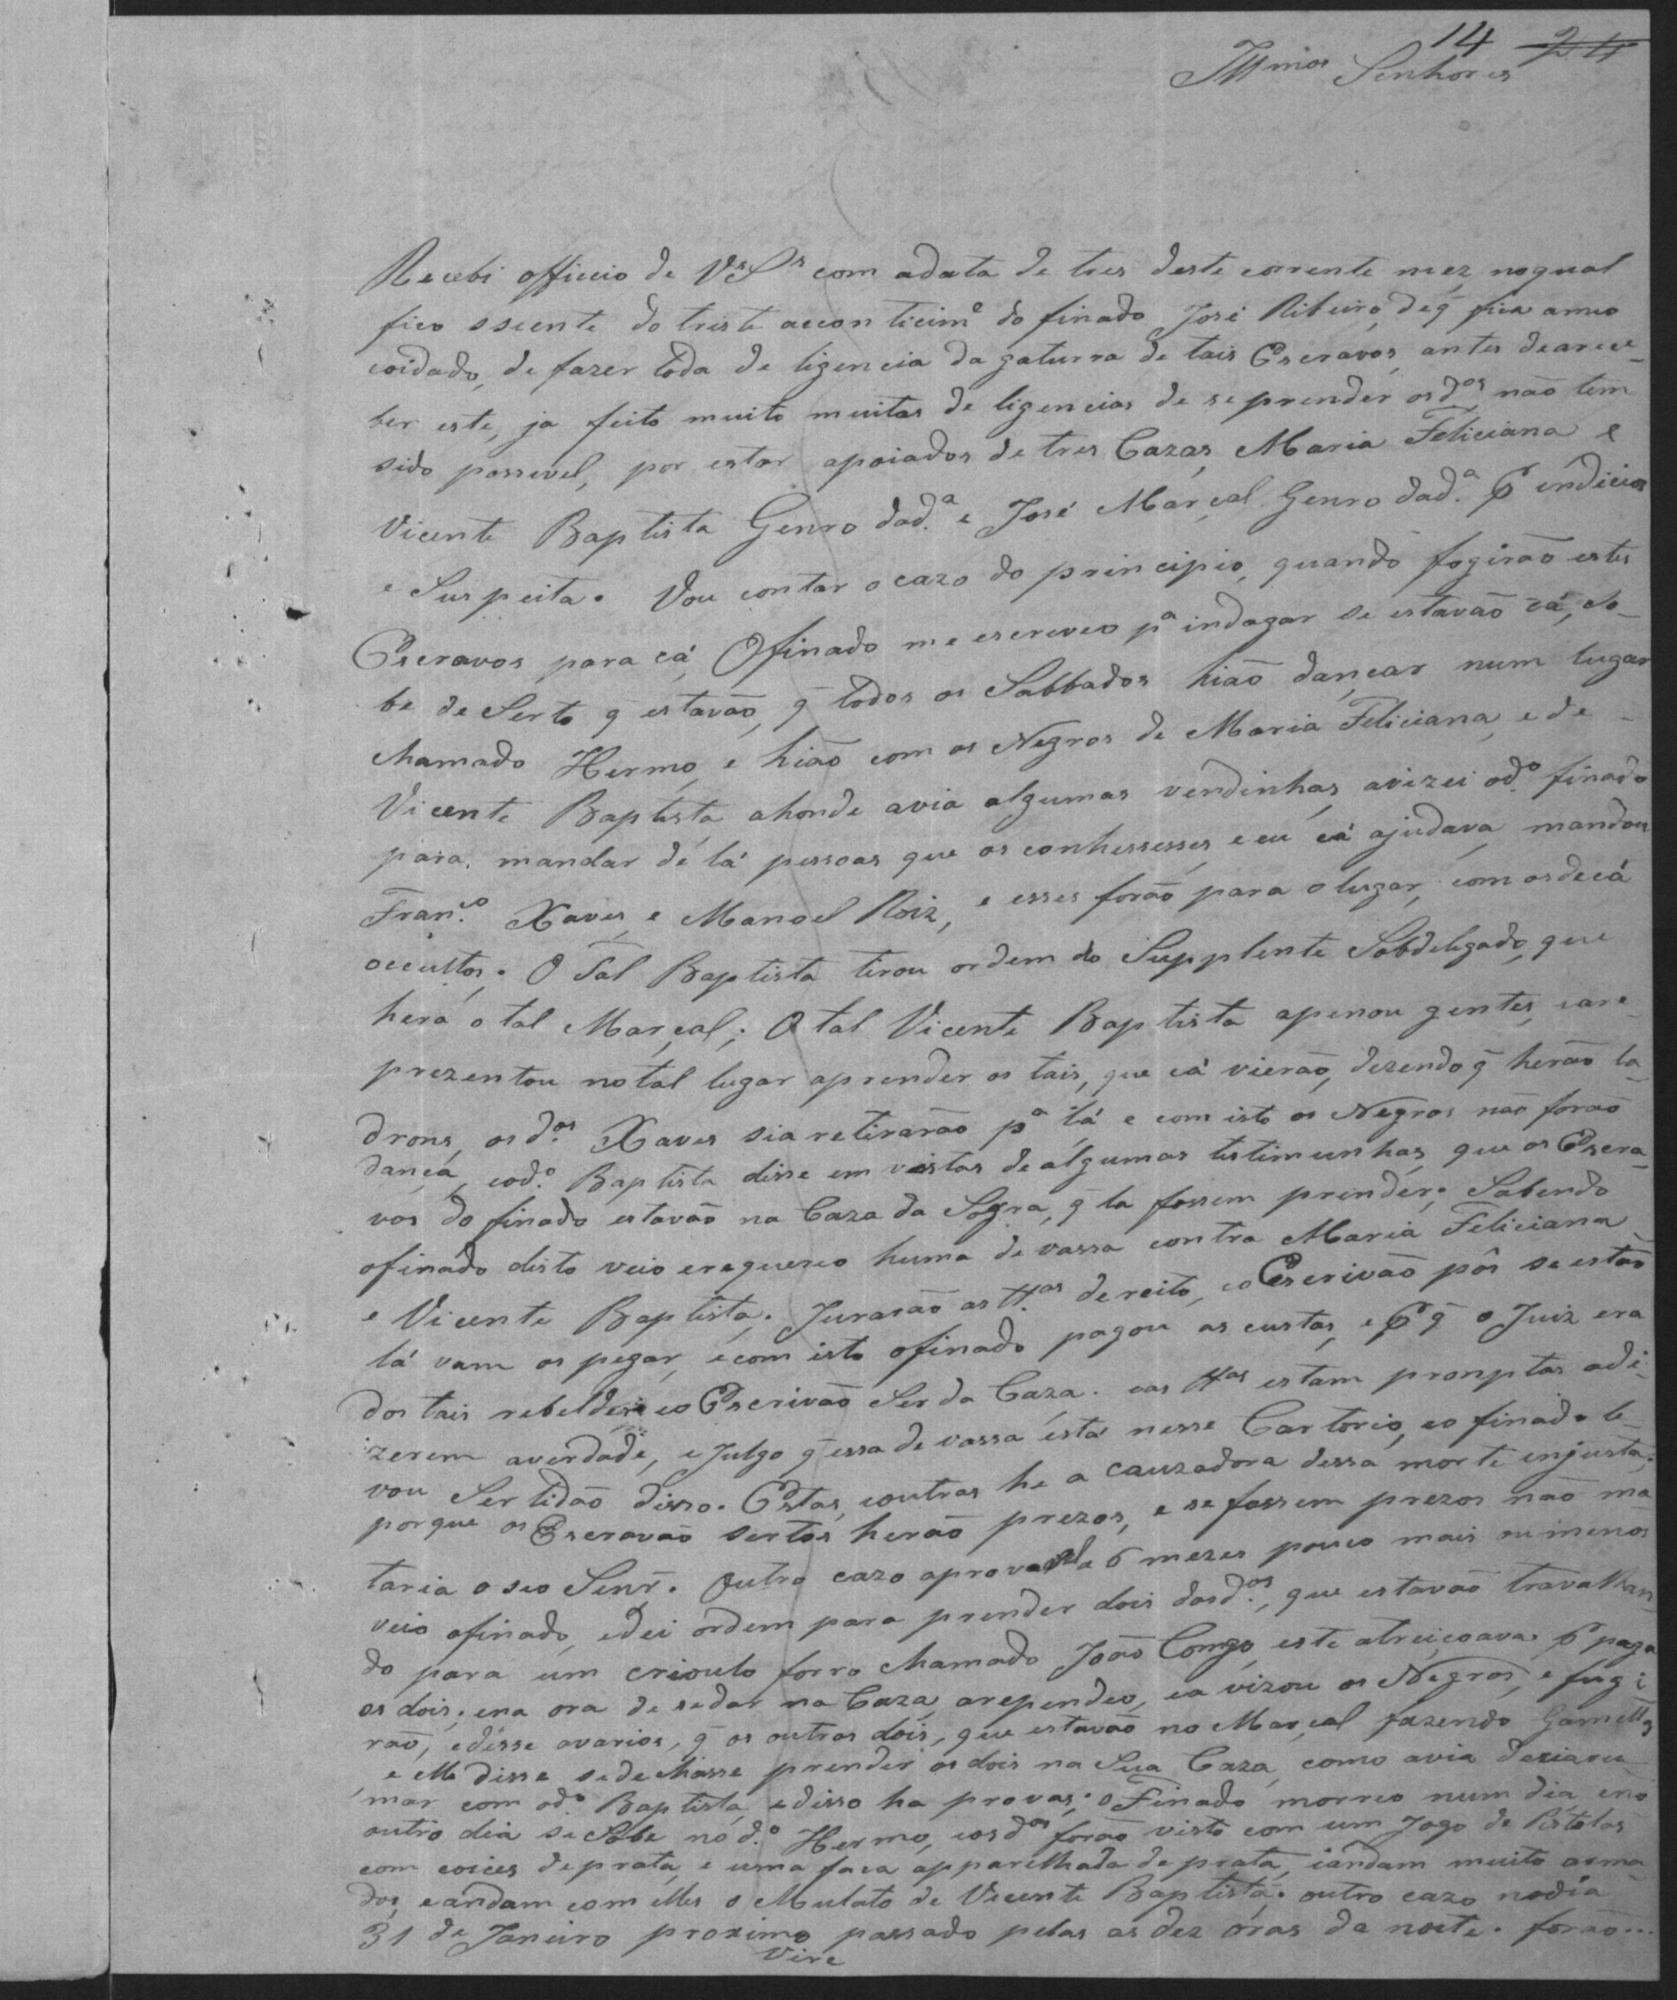 14 24
Illmos Senhores
Recebi officio de VsSs com adata de tres deste corrente mez, noqual
fico ssiente do triste acconticimo do finado José Ribeiro, deq̃ fica ameo
coidado, de fazer toda de ligencia da gaturra de tais Escravos, antes dearece-
ber este, ja feito muito muitas de ligencias de se prender osdos não tem
sido possevel, por estar apoiados de tres Cazas, Maria Feliciana e
Vicente Baptista Genro dad.a e José Marçal Genro dad.a P endicios
e Suspeita. Vou contar ocazo do principio, quando fogirão estes
Escravos para cá, Ofinado me escreveo pa indagar se estavão cá, So-
be de Serto q̃ estavão, q̃ todos os Sabbados hião dançar num lugar
chamado Hermo, e hião com os Negros de Maria Feliciana, e de
Vicente Baptista ahonde avia algumas vendinhas, avizei od.o finado
para mandar de lá pessoas que os conhessesses, e eu cá ajudava, mandou
Fran.co Xaves, e Manoel Roiz, e esses forão para o lugar, com osdecá
occultos. O Tal Baptista tirou ordem do Supplente Sobdelgado, que
hera o tal Marçal; O tal Vicente Baptista apenou gentes, eare-
prezentou notal lugar aprender os tais, que cá vierão, dezendo q̃ herão la-
drons, os d.os Xaves sia retirarão pa lá e com isto os Negros não forão
dança, eod.o Baptista disse em vistas de algumas testimunhas, que os Escra-
vos do finado estavão na Caza da Sogra, q̃ la fossem prender; Sabendo
ofinado disto veio erequereo huma de vassa contra Maria Feliciana
e Vicente Baptista. Jurarão as tt.as dereito, eo Escrivão pôs se estão
lá vam os pegar, ecom isto ofinado pagou as custas, e P q̃ o Juiz era
dos tais rebeldes, eo Escrivão Ser da Caza. eas ttas estam promptas adi-
zerem averdade, e Julgo q̃ essa de vassa está nesse Cartorio, eo finado le-
vou Sertidão disso. Estas, eoutras he a cauzadora dessa morte enjusta;
porque os Escravão sertos herão prezos, e se fossem prezos não ma
taria o seo Senr̃. Outro cazo aprova 6 mezes pouco mais ou menos
veio ofinado, edei ordem para prender dois dosd.os, que estavão travalhan-
do para um crioulo forro chamado João Congo, este atreiçoava P paga
os dois; ena ora de sedar na Caza, arependeo, ea vizou os Negros, e fugi
rão, edisse avarios, q̃ os outros dois, que estavão no Marçal fazendo Gamellas
e elle disse sedechasse prender os dois na Sua Caza, como avia
mar com od.o Baptista, edisso ha provas; o Finado morreo num dia eno
outro dia se Sobe nod.o Hermo, eosdos forão visto com um Jogo de Pistolas
com coices de prata, e uma faca apparelhada de prata, eandam muito arma
dos, eandam com elles o Mulato de Vicente Baptista. outro cazo nodia
31 de Janeiro proximo passado pelas as dez óras da noite. forão...
Vire